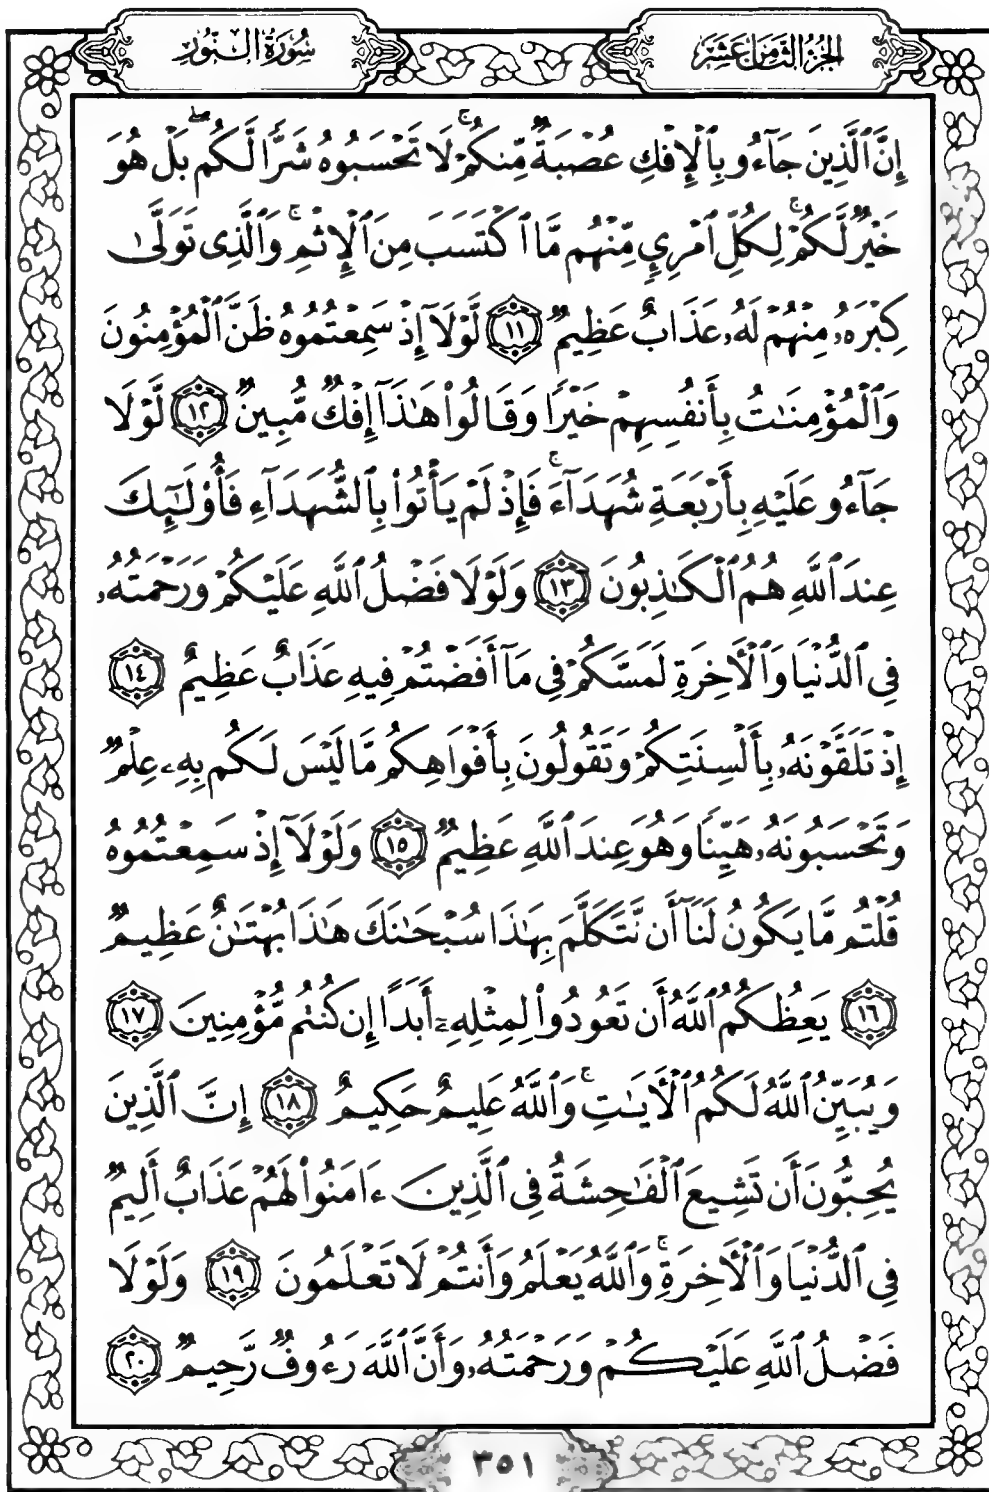 الجزء الثامن عشر
سورة النور
إِنَّ ٱلَّذِينَ جَآءُو بِٱلْإِفْكِ عُصْبَةٌ مِّنكُمْ ۚ لَا تَحْسَبُوهُ شَرًّا لَّكُم ۖ بَلْ هُوَ
خَيْرٌ لَّكُمْ ۚ لِكُلِّ ٱمْرِئٍ مِّنْهُم مَّا ٱكْتَسَبَ مِنَ ٱلْإِثْمِ ۚ وَٱلَّذِى تَوَلَّىٰ
كِبْرَهُۥ مِنْهُمْ لَهُۥ عَذَابٌ عَظِيمٌ ١١ لَّوْلَآ إِذْ سَمِعْتُمُوهُ ظَنَّ ٱلْمُؤْمِنُونَ
وَٱلْمُؤْمِنَـٰتُ بِأَنفُسِهِمْ خَيْرًا وَقَالُوا۟ هَـٰذَآ إِفْكٌ مُّبِينٌ ١٢ لَّوْلَا
جَآءُو عَلَيْهِ بِأَرْبَعَةِ شُهَدَآءَ ۚ فَإِذْ لَمْ يَأْتُوا۟ بِٱلشُّهَدَآءِ فَأُو۟لَـٰٓئِكَ
عِندَ ٱللَّهِ هُمُ ٱلْكَـٰذِبُونَ ١٣ وَلَوْلَا فَضْلُ ٱللَّهِ عَلَيْكُمْ وَرَحْمَتُهُۥ
فِى ٱلدُّنْيَا وَٱلْـَٔاخِرَةِ لَمَسَّكُمْ فِى مَآ أَفَضْتُمْ فِيهِ عَذَابٌ عَظِيمٌ ١٤
إِذْ تَلَقَّوْنَهُۥ بِأَلْسِنَتِكُمْ وَتَقُولُونَ بِأَفْوَاهِكُم مَّا لَيْسَ لَكُم بِهِۦ عِلْمٌ
وَتَحْسَبُونَهُۥ هَيِّنًا وَهُوَ عِندَ ٱللَّهِ عَظِيمٌ ١٥ وَلَوْلَآ إِذْ سَمِعْتُمُوهُ
قُلْتُم مَّا يَكُونُ لَنَآ أَن نَّتَكَلَّمَ بِهَـٰذَا سُبْحَـٰنَكَ هَـٰذَا بُهْتَـٰنٌ عَظِيمٌ
١٦ يَعِظُكُمُ ٱللَّهُ أَن تَعُودُوا۟ لِمِثْلِهِۦٓ أَبَدًا إِن كُنتُم مُّؤْمِنِينَ ١٧
وَيُبَيِّنُ ٱللَّهُ لَكُمُ ٱلْـَٔايَـٰتِ ۚ وَٱللَّهُ عَلِيمٌ حَكِيمٌ ١٨ إِنَّ ٱلَّذِينَ
يُحِبُّونَ أَن تَشِيعَ ٱلْفَـٰحِشَةُ فِى ٱلَّذِينَ ءَامَنُوا۟ لَهُمْ عَذَابٌ أَلِيمٌ
فِى ٱلدُّنْيَا وَٱلْـَٔاخِرَةِ ۚ وَٱللَّهُ يَعْلَمُ وَأَنتُمْ لَا تَعْلَمُونَ ١٩ وَلَوْلَا
فَضْلُ ٱللَّهِ عَلَيْكُمْ وَرَحْمَتُهُۥ وَأَنَّ ٱللَّهَ رَءُوفٌ رَّحِيمٌ ٢٠
٣٥١